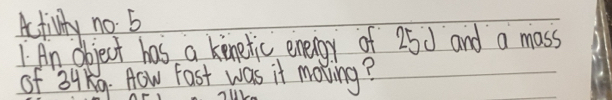 Activity no. 5
1. An object has a kenetic energy of 25J and a mass
of 34Kg. How fast was it moving?